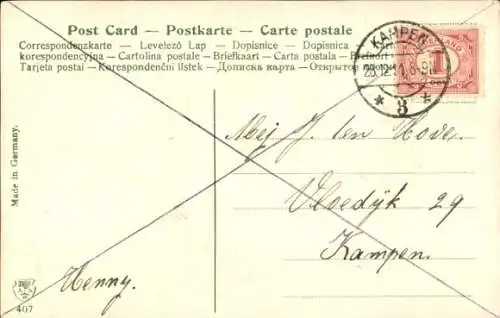 Post Card — Postkarte — Carte postale
Correspondenzkarte — Levelező Lap — Dopisnice — Dopisnica
korespondencyjna — Cartolina postale — Briefkaart — Carta postala —
Tarjeta postal — Korespondenční lístek — Дописна карта — Открытое
KAMPEN
28.12.11. 8-9N
3
1
Mej J. ten Hove.
Vloedijk 29
Kampen.
Henny.
Made in Germany.
407